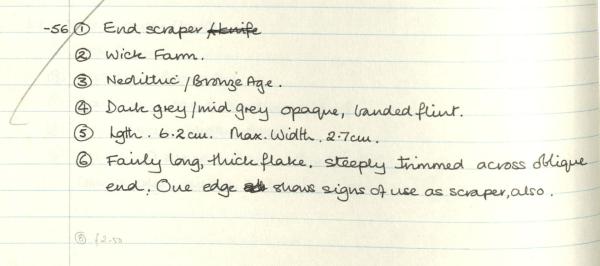 -56 ① End scraper /knife
② Wick Farm.
③ Neolithic/Bronze Age.
④ Dark grey/mid grey opaque, banded flint.
⑤ Lgth. 6.2cm. Max. Width. 2.7cm.
⑥ Fairly long, thick flake. steeply trimmed across oblique
end. One edge shows signs of use as scraper, also.
⑧ £2.50